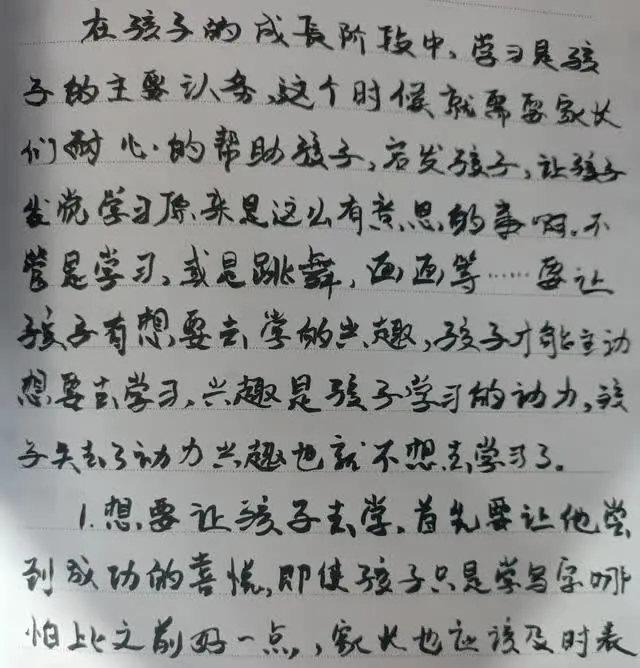 在孩子的成长阶段中，学习是孩
子的主要认务，这个时候就需要家长
们耐心的帮助孩子，启发孩子，让孩子
发觉学习原来是这么有意思的事啊。不
管是学习，或是跳舞，画画等……要让
孩子有想要去学的兴趣，孩子才能主动
想要去学习，兴趣是孩子学习的动力，孩
子失去了动力兴趣也就不想去学习了。
1.想要让孩子去学，首先要让他尝
到成功的喜悦，即使孩子只是学写字哪
怕比之前好一点，，家长也应该及时表